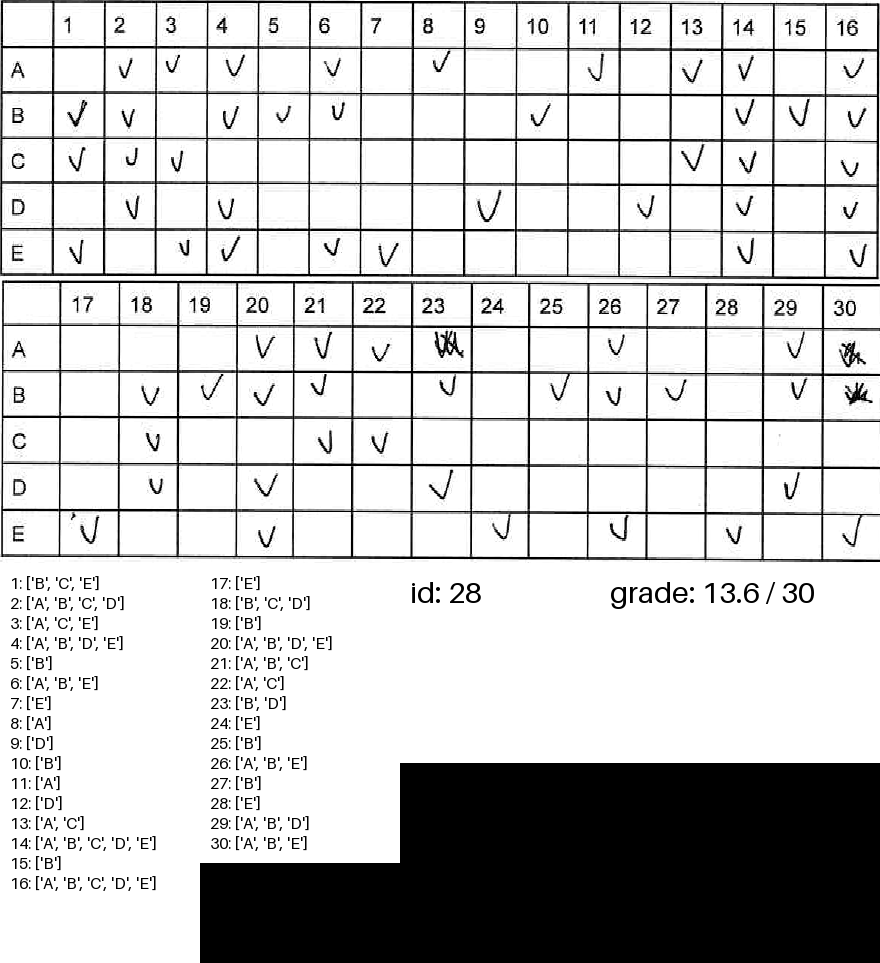 1 2 3 4 5 6 7 8 9 10 11 12 13 14 15 16
A ✓ ✓ ✓ ✓ ✓ ✓ ✓ ✓ ✓
B ✓ ✓ ✓ ✓ ✓ ✓ ✓ ✓ ✓
C ✓ ✓ ✓ ✓ ✓ ✓
D ✓ ✓ ✓ ✓ ✓ ✓
E ✓ ✓ ✓ ✓ ✓ ✓ ✓
17 18 19 20 21 22 23 24 25 26 27 28 29 30
A ✓ ✓ ✓ ✓ ✓
B ✓ ✓ ✓ ✓ ✓ ✓ ✓ ✓ ✓
C ✓ ✓ ✓
D ✓ ✓ ✓ ✓
E ✓ ✓ ✓ ✓ ✓ ✓
1: ['B', 'C', 'E']
2: ['A', 'B', 'C', 'D']
3: ['A', 'C', 'E']
4: ['A', 'B', 'D', 'E']
5: ['B']
6: ['A', 'B', 'E']
7: ['E']
8: ['A']
9: ['D']
10: ['B']
11: ['A']
12: ['D']
13: ['A', 'C']
14: ['A', 'B', 'C', 'D', 'E']
15: ['B']
16: ['A', 'B', 'C', 'D', 'E']
17: ['E']
18: ['B', 'C', 'D']
19: ['B']
20: ['A', 'B', 'D', 'E']
21: ['A', 'B', 'C']
22: ['A', 'C']
23: ['B', 'D']
24: ['E']
25: ['B']
26: ['A', 'B', 'E']
27: ['B']
28: ['E']
29: ['A', 'B', 'D']
30: ['A', 'B', 'E']
id: 28
grade: 13.6 / 30